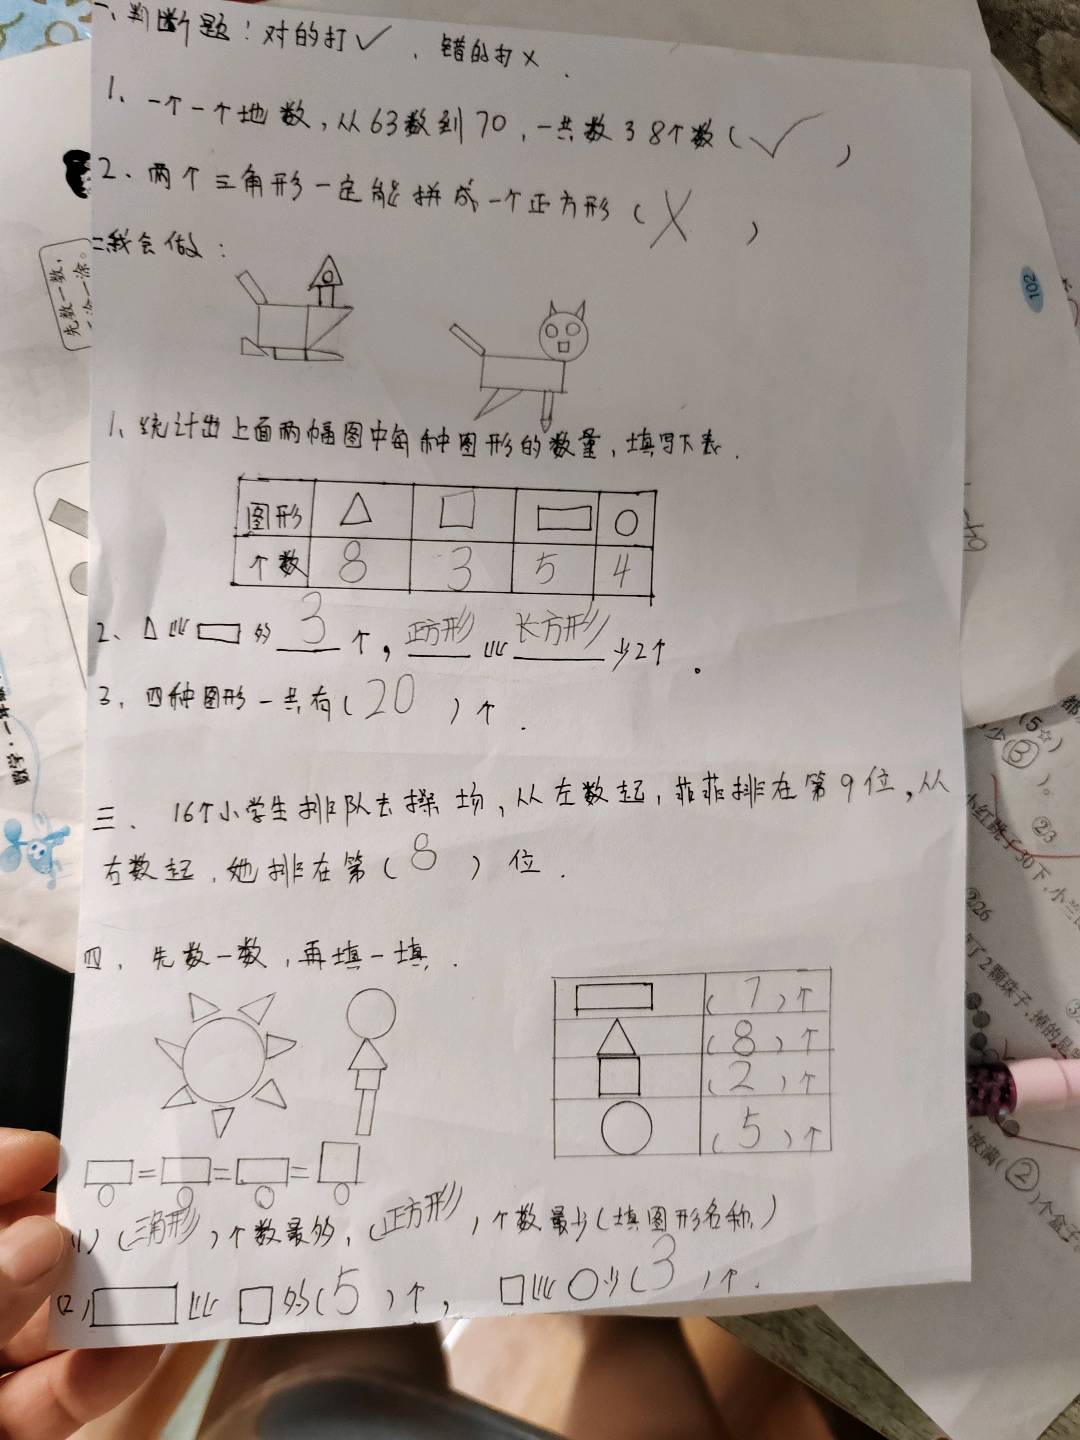 一、判断题：对的打✓，错的打×.
1、一个一个地数，从63数到70，一共数38个数（✓）
2、两个三角形一定能拼成一个正方形（X）
二我会做：
1、统计出上面两幅图中每种图形的数量，填写下表.
图形 △ □ ▭ ○
个数 8 3 5 4
2、△比▭多3个，正方形比长方形少2个。
3、四种图形一共有（20）个.
三、16个小学生排队去操场，从左数起，菲菲排在第9位，从
右数起，她排在第（8）位.
四、先数一数，再填一填.
▭（7）个
△（8）个
□（2）个
○（5）个
(1)（三角形）个数最多，（正方形），个数最少（填图形名称）
(2)▭比□多（5）个，□比○少（3）个.
先数一数，
102
数学一·
(5☆)
少③。
②3
小红跳了30下，小兰
②26
了2颗珠子，掉的是
放满(②)个盒子